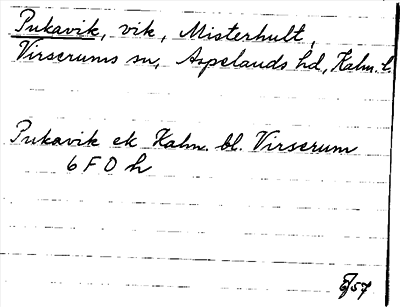 Pukavik, vik, Misterhult,
Virserums sn, Aspelands hd, Kalm. l.
Pukavik ek Kalm. bl. Virserum
6 F 0 h
6/57